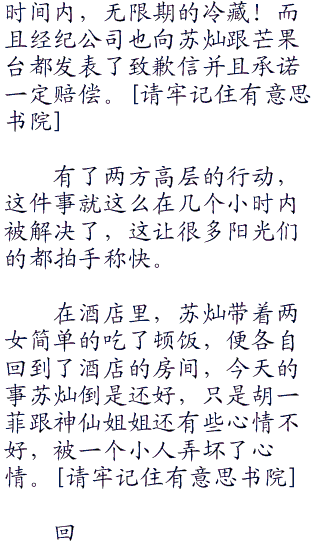 时间内，无限期的冷藏！而
且经纪公司也向苏灿跟芒果
台都发表了致歉信并且承诺
一定赔偿。[请牢记住有意思
书院]
有了两方高层的行动，
这件事就这么在几个小时内
被解决了，这让很多阳光们
的都拍手称快。
在酒店里，苏灿带着两
女简单的吃了顿饭，便各自
回到了酒店的房间，今天的
事苏灿倒是还好，只是胡一
菲跟神仙姐姐还有些心情不
好，被一个小人弄坏了心
情。[请牢记住有意思书院]
回